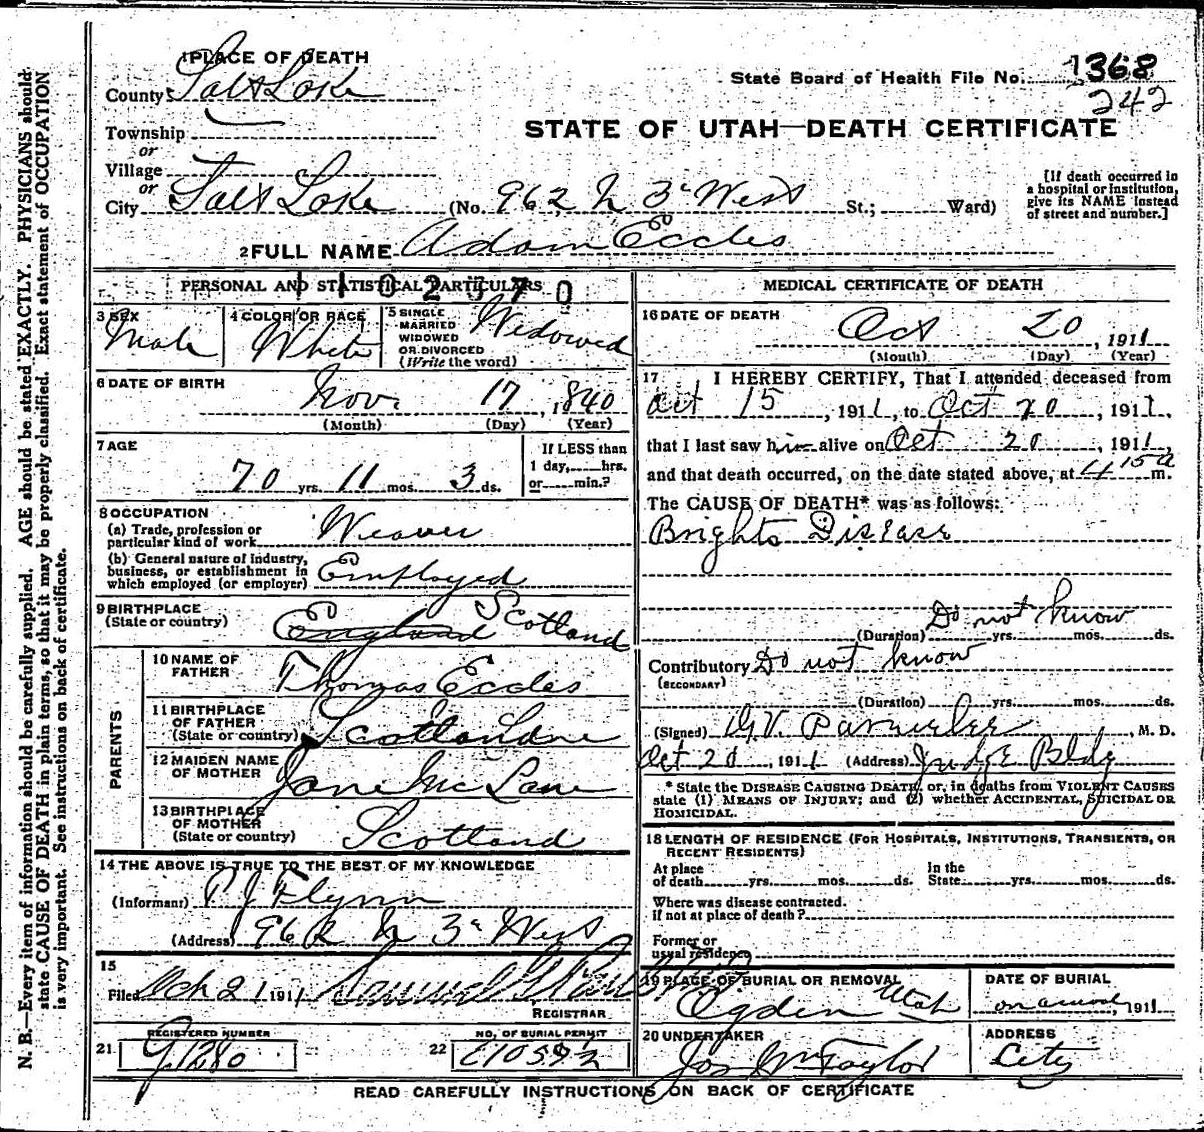 1 PLACE OF DEATH
County Salt Lake
State Board of Health File No. 1368
242
Township
or
Village
or
STATE OF UTAH—DEATH CERTIFICATE
City Salt Lake (No. 962 N 3rd West St.; Ward)
[If death occurred in
a hospital or institution,
give its NAME instead
of street and number.]
2 FULL NAME Adam Eccles
PERSONAL AND STATISTICAL PARTICULARS
1102370
3 SEX
Male
4 COLOR OR RACE
White
5 SINGLE
MARRIED
WIDOWED
OR DIVORCED
(Write the word)
Widowed
6 DATE OF BIRTH
Nov. 17, 1840
(Month) (Day) (Year)
7 AGE
70 yrs. 11 mos. 3 ds.
If LESS than
1 day, hrs.
or min.?
8 OCCUPATION
(a) Trade, profession or
particular kind of work Weaver
(b) General nature of industry,
business, or establishment in
which employed (or employer) Employed
9 BIRTHPLACE
(State or country) England Scotland
PARENTS
10 NAME OF
FATHER Thomas Eccles
11 BIRTHPLACE
OF FATHER
(State or country) Scotland
12 MAIDEN NAME
OF MOTHER Jane McLane
13 BIRTHPLACE
OF MOTHER
(State or country) Scotland
14 THE ABOVE IS TRUE TO THE BEST OF MY KNOWLEDGE
(Informant) P J Flynn
(Address) 962 N 3rd West
15
Filed Oct 21 1911 Samuel G
REGISTRAR
REGISTERED NUMBER
21 G1280
NO. OF BURIAL PERMIT
22 E10592
MEDICAL CERTIFICATE OF DEATH
16 DATE OF DEATH
Oct 20, 1911
(Month) (Day) (Year)
17 I HEREBY CERTIFY, That I attended deceased from
Oct 15, 1911, to Oct 20, 1911,
that I last saw him alive on Oct 20, 1911,
and that death occurred, on the date stated above, at 4 15 a m.
The CAUSE OF DEATH* was as follows:
Brights Disease
Do not know
(Duration) yrs. mos. ds.
Contributory Do not know
(SECONDARY)
(Duration) yrs. mos. ds.
(Signed) G.V. Parmelee, M. D.
Oct 20, 1911 (Address) Judge Bldg
* State the DISEASE CAUSING DEATH, or, in deaths from VIOLENT CAUSES
state (1) MEANS OF INJURY; and (2) whether ACCIDENTAL, SUICIDAL OR
HOMICIDAL.
18 LENGTH OF RESIDENCE (FOR HOSPITALS, INSTITUTIONS, TRANSIENTS, OR
RECENT RESIDENTS)
At place
of death yrs. mos. ds.
In the
State yrs. mos. ds.
Where was disease contracted.
if not at place of death?
Former or
usual residence
19 PLACE OF BURIAL OR REMOVAL
Ogden Utah
DATE OF BURIAL
on arrival, 1911
20 UNDERTAKER
Jos Wm Taylor
ADDRESS
City
READ CAREFULLY INSTRUCTIONS ON BACK OF CERTIFICATE
N. B.—Every item of information should be carefully supplied. AGE should be stated EXACTLY. PHYSICIANS should
state CAUSE OF DEATH in plain terms, so that it may be properly classified. Exact statement of OCCUPATION
is very important. See instructions on back of certificate.